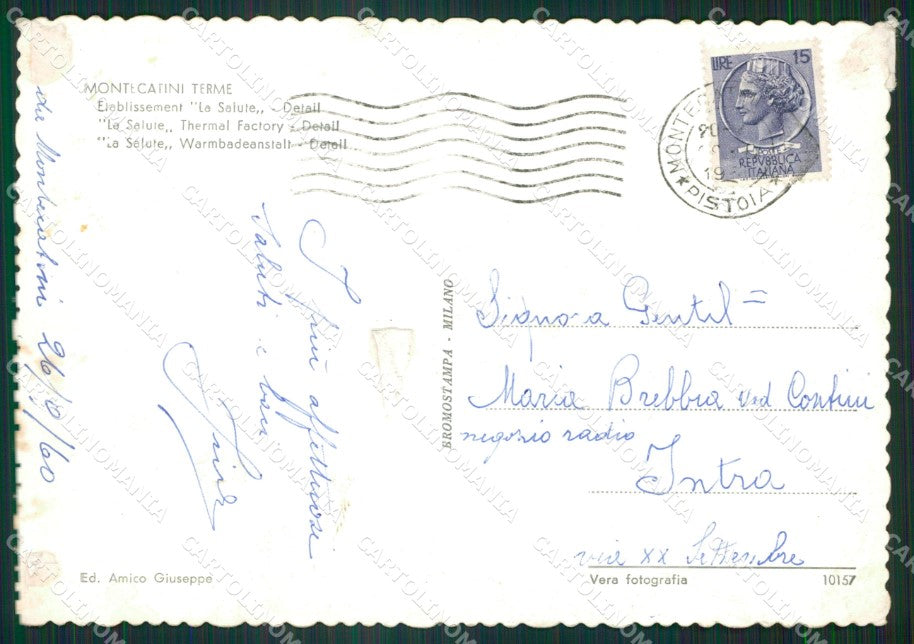 MONTECATINI TERME
Etablissement "La Salute,, - Detail
"La Salute,, Thermal Factory - Detail
"La Salute,, Warmbadeanstalt - Detail
LIRE 15
REPVBBLICA
ITALIANA
PISTOIA
da Montecatini 26/8/60
I più affettuosi
saluti e baci
BROMOSTAMPA - MILANO
Signora Gentil=
Maria Brebbia ved Contini
negozio radio
Intra
via XX Settembre
Ed. Amico Giuseppe
Vera fotografia
10157
CARTOLINOMANIA